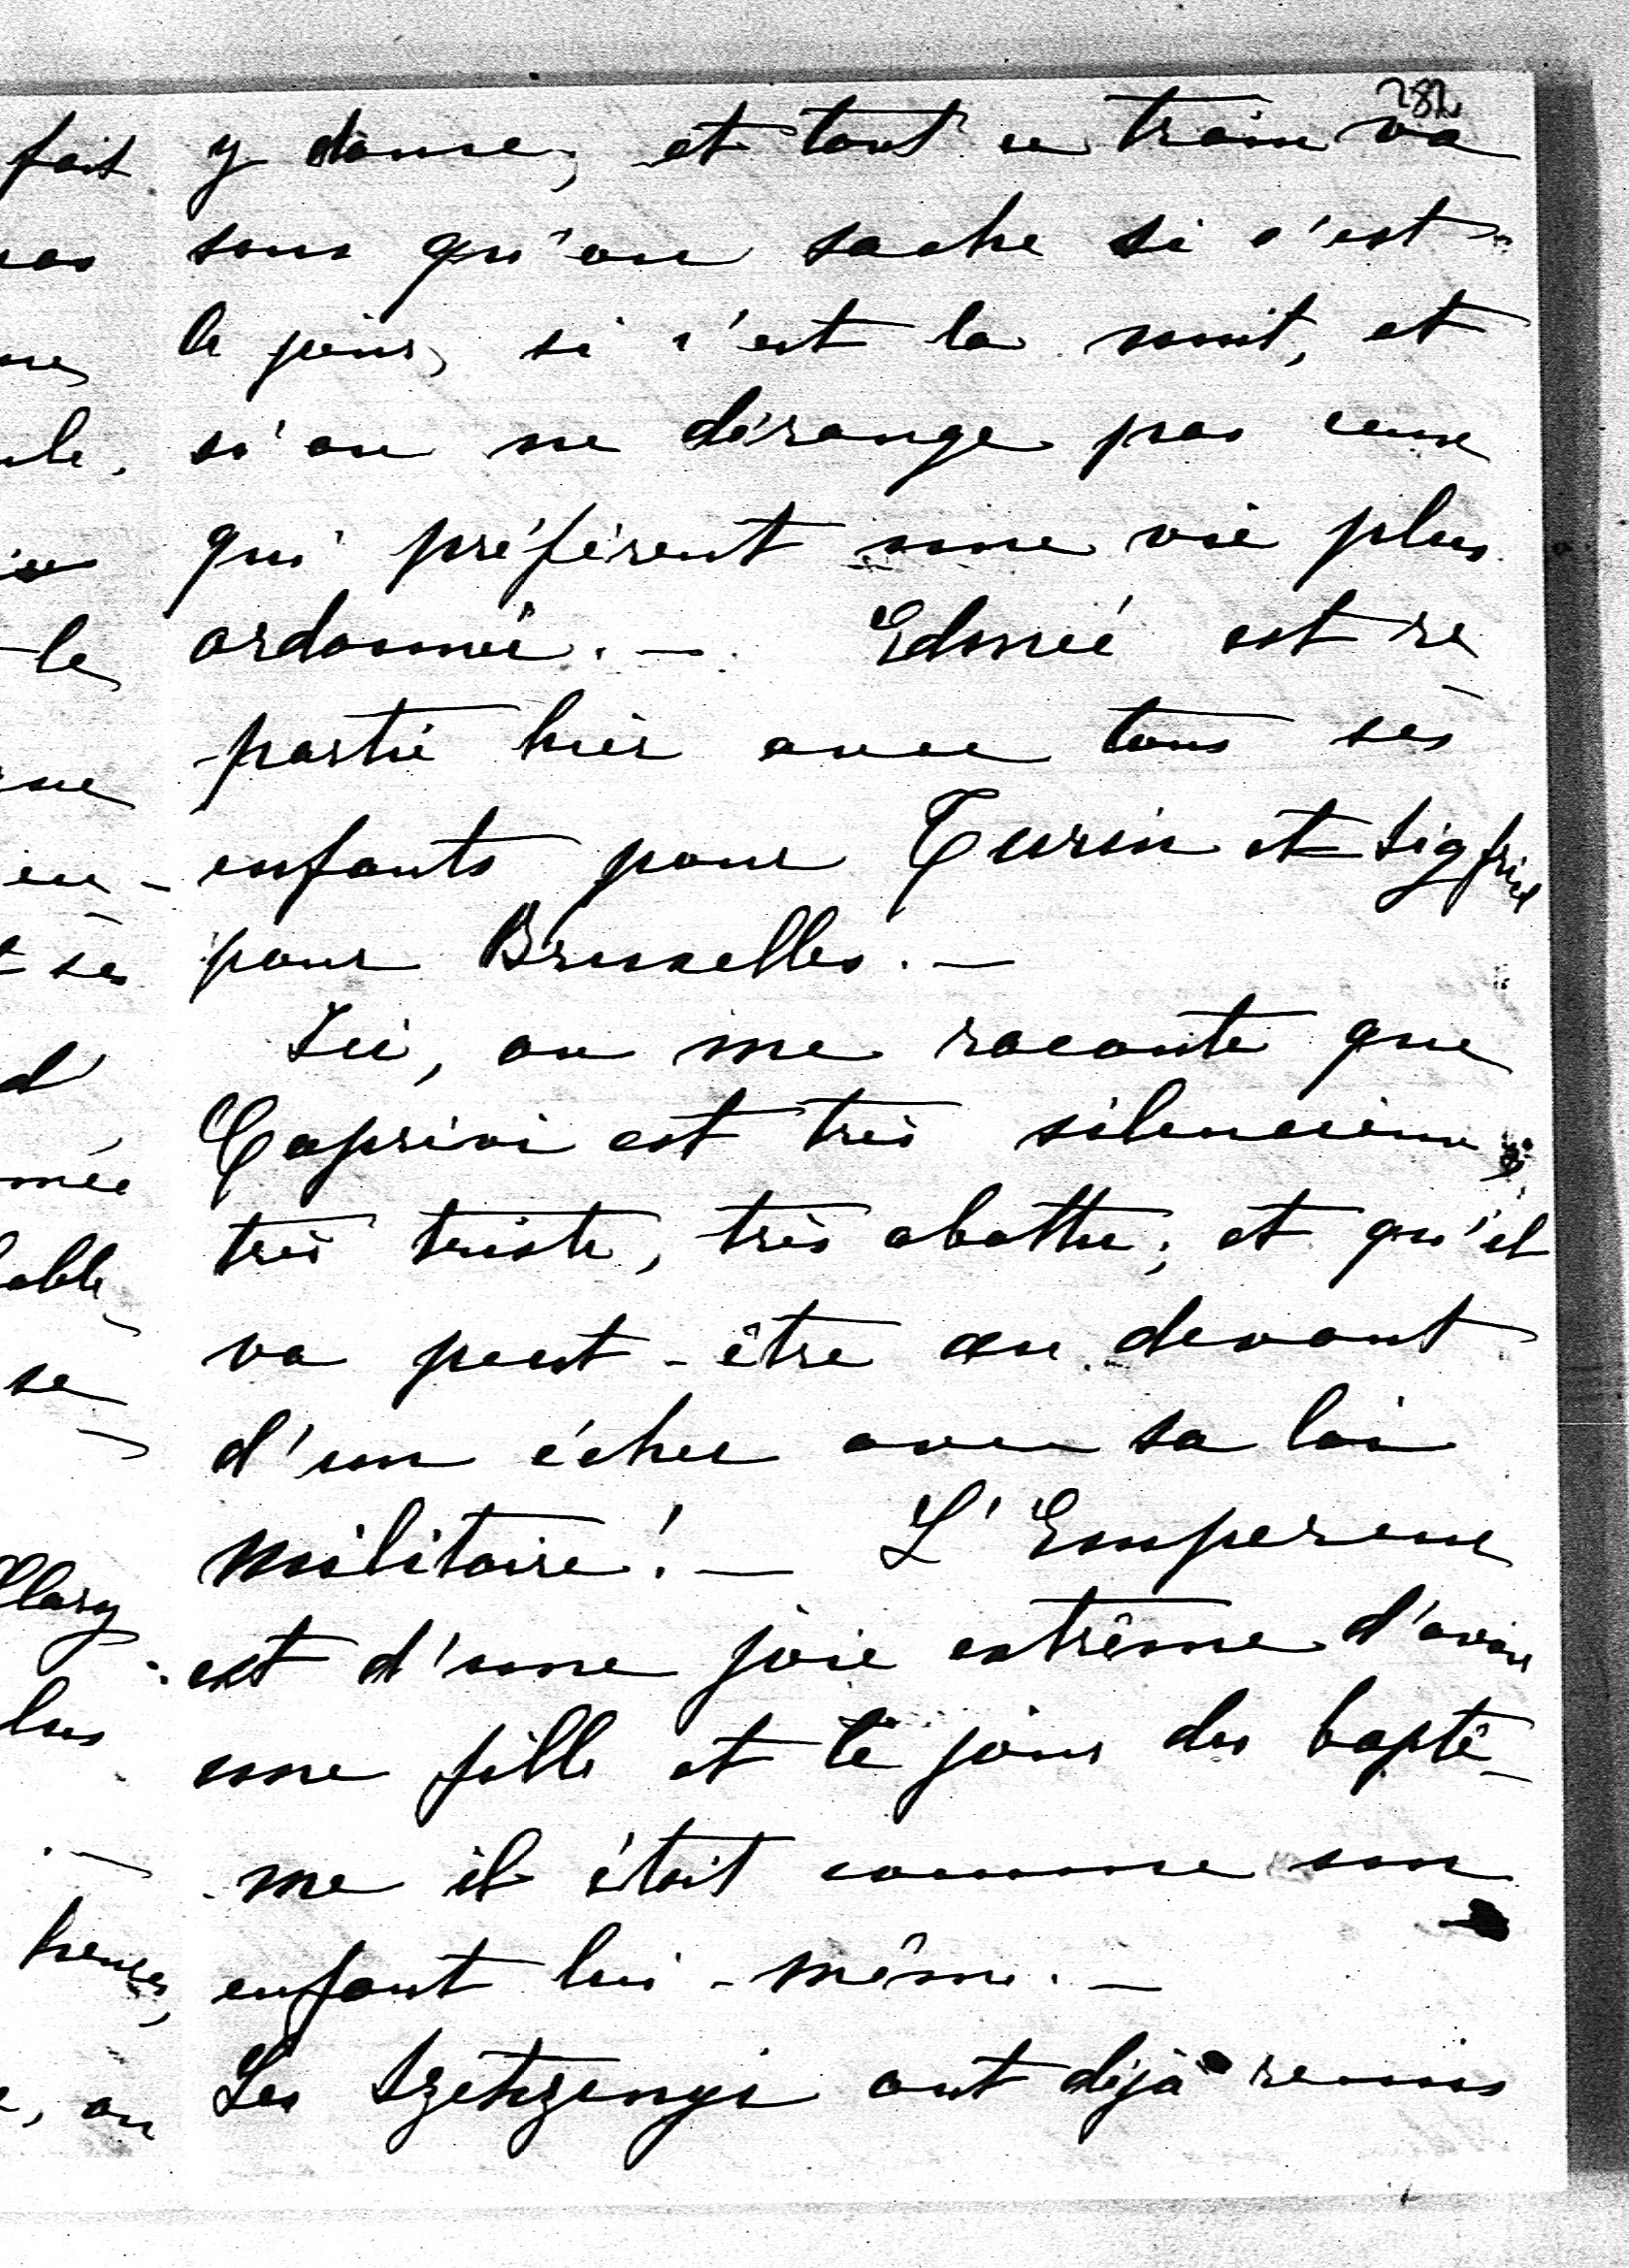 282
y danse, et tout ce train va
sans qu'on sache si c'est
le jour, si c'est la nuit, et
s'on ne dérange pas ceux
qui préfèrent une vie plus
ordonnée. — Edmée est re
partie hier avec tous ses
enfants pour Turin et Sigfried
pour Bruxelles. —
Ici, on me raconte que
Caprivi est très silencieux,
très triste, très abattu; et qu'il
va peut-être au devant
d'un échec avec sa loi
militaire! — L'Empereur
est d'une joie extrême d'avoir
une fille et le jour du baptê-
me il était comme un
enfant lui-même. —
Les Szetzenyi ont déjà remis